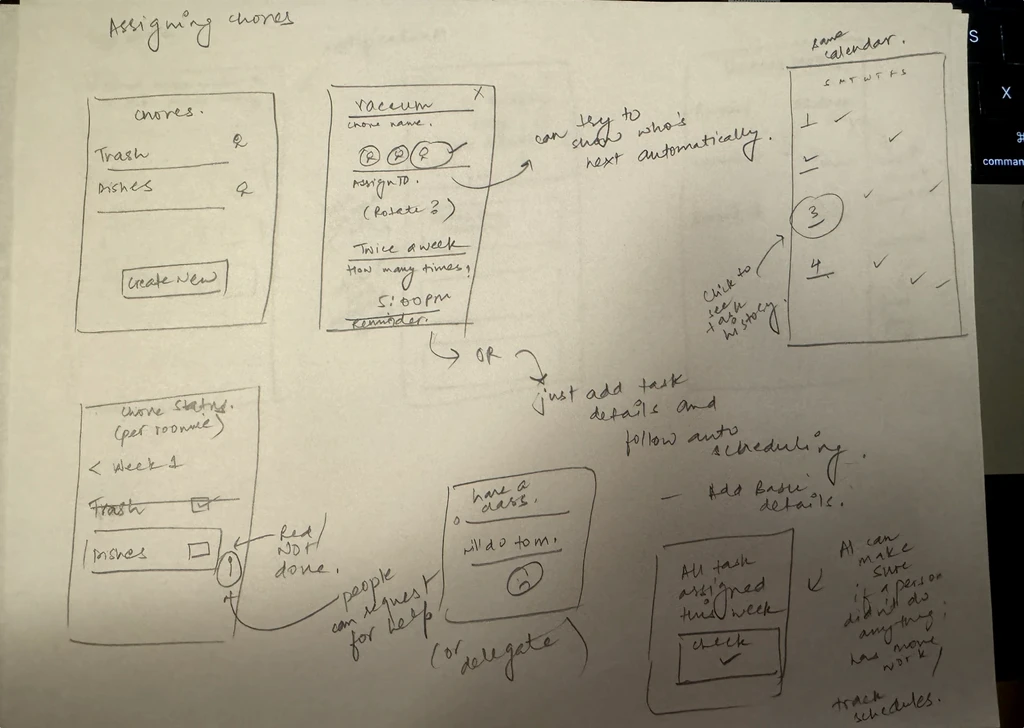 Assigning chores
chores.
Trash
Dishes
Create New
X
vaccum
chore name.
Assign to.
(Rotate?)
Twice a week
How many times?
5:00pm
Reminder.
can try to
show who's
next automatically.
same
calendar.
S M T W T F S
1
2
3
4
click to
see
task
history.
OR
just add task
details and
follow auto
scheduling.
— Add Basic
details.
chore status.
(per roomie)
< Week 1
Trash
Dishes
!
Red/
NOT
done.
people
can request
for help
(or
delegate)
have a
class.
will do tom.
All task
assigned
this week
check
AI can
make
sure
if a person
didn't do
anything,
has more
work/
track
schedules.
S
X
⌘
comman